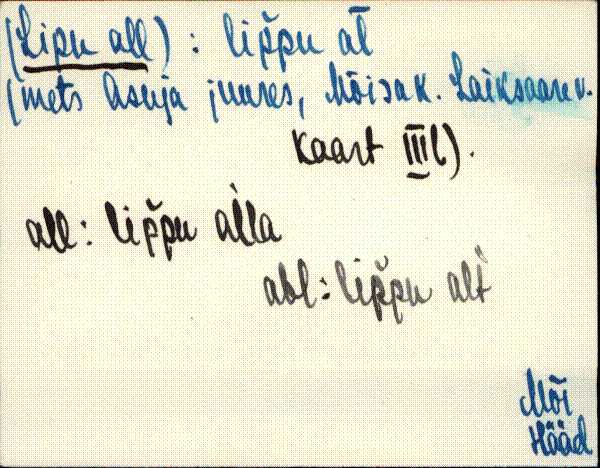 (Lipu all) : lip̆pu al̄
(mets Asuja juures, Mõisak. Laiksaare v.
Kaart III l).
all: lip̆pu al̀la
abl: lip̆pu alt̀
Mõi
Hääd